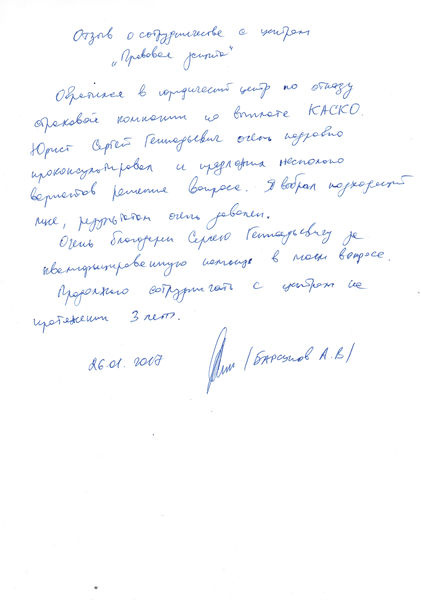 Отзыв о сотрудничестве с центром
„Правовая защита"
Обратился в юридический центр по отказу
страховой компании по выплате КАСКО.
Юрист Сергей Геннадьевич очень подробно
проконсультировал и предложил несколько
вариантов решения вопроса. Я выбрал подходящий
мне, результатом очень доволен.
Очень благодарен Сергею Геннадьевичу за
квалифицированную помощь в моем вопросе.
Продолжаю сотрудничать с центром на
протяжении 3 лет.
26.01.2017 /Барсуков А.В/